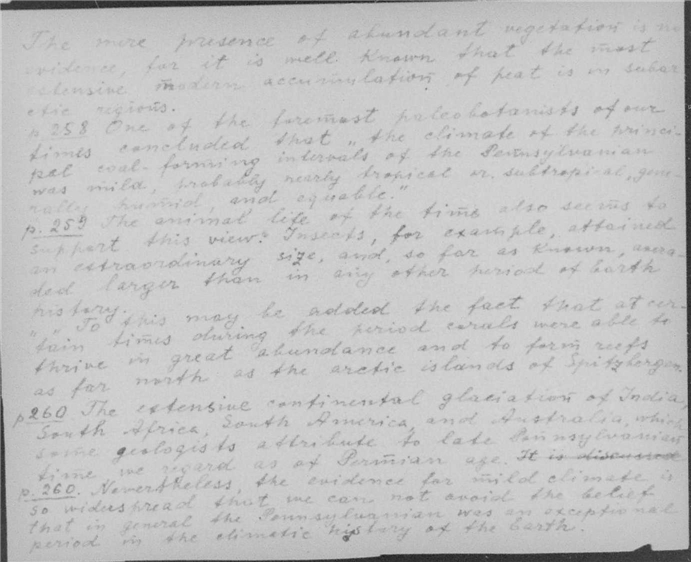 The mere presence of abundant vegetation is no
evidence, for it is well known that the most
extensive modern accumulation of peat is in subar-
ctic regions.
p. 258 One of the foremost paleobotanists of our
times concluded that „ the climate of the princi-
pal coal-forming intervals of the Pennsylvanian
was mild, probably nearly tropical or subtropical, gene-
rally humid, and equable."
p. 259 The animal life of the time also seems to
support this view. Insects, for example, attained
an extraordinary size, and, so far as known, avera-
ded larger than in any other period of Earth
history.
" " To this may be added the fact that at cer-
tain times during the period corals were able to
thrive in great abundance and to form reefs
as far north as the arctic islands of Spitzbergen.
p 260 The extensive continental glaciation of India,
South Africa, South America, and Australia, which
some geologists attribute to late Pennsylvanian
time we regard as of Permian age. It is discussed
p. 260. Nevertheless, the evidence for mild climate is
so widespread that we can not avoid the belief
that in general the Pennsylvanian was an exceptional
period in the climatic history of the Earth.